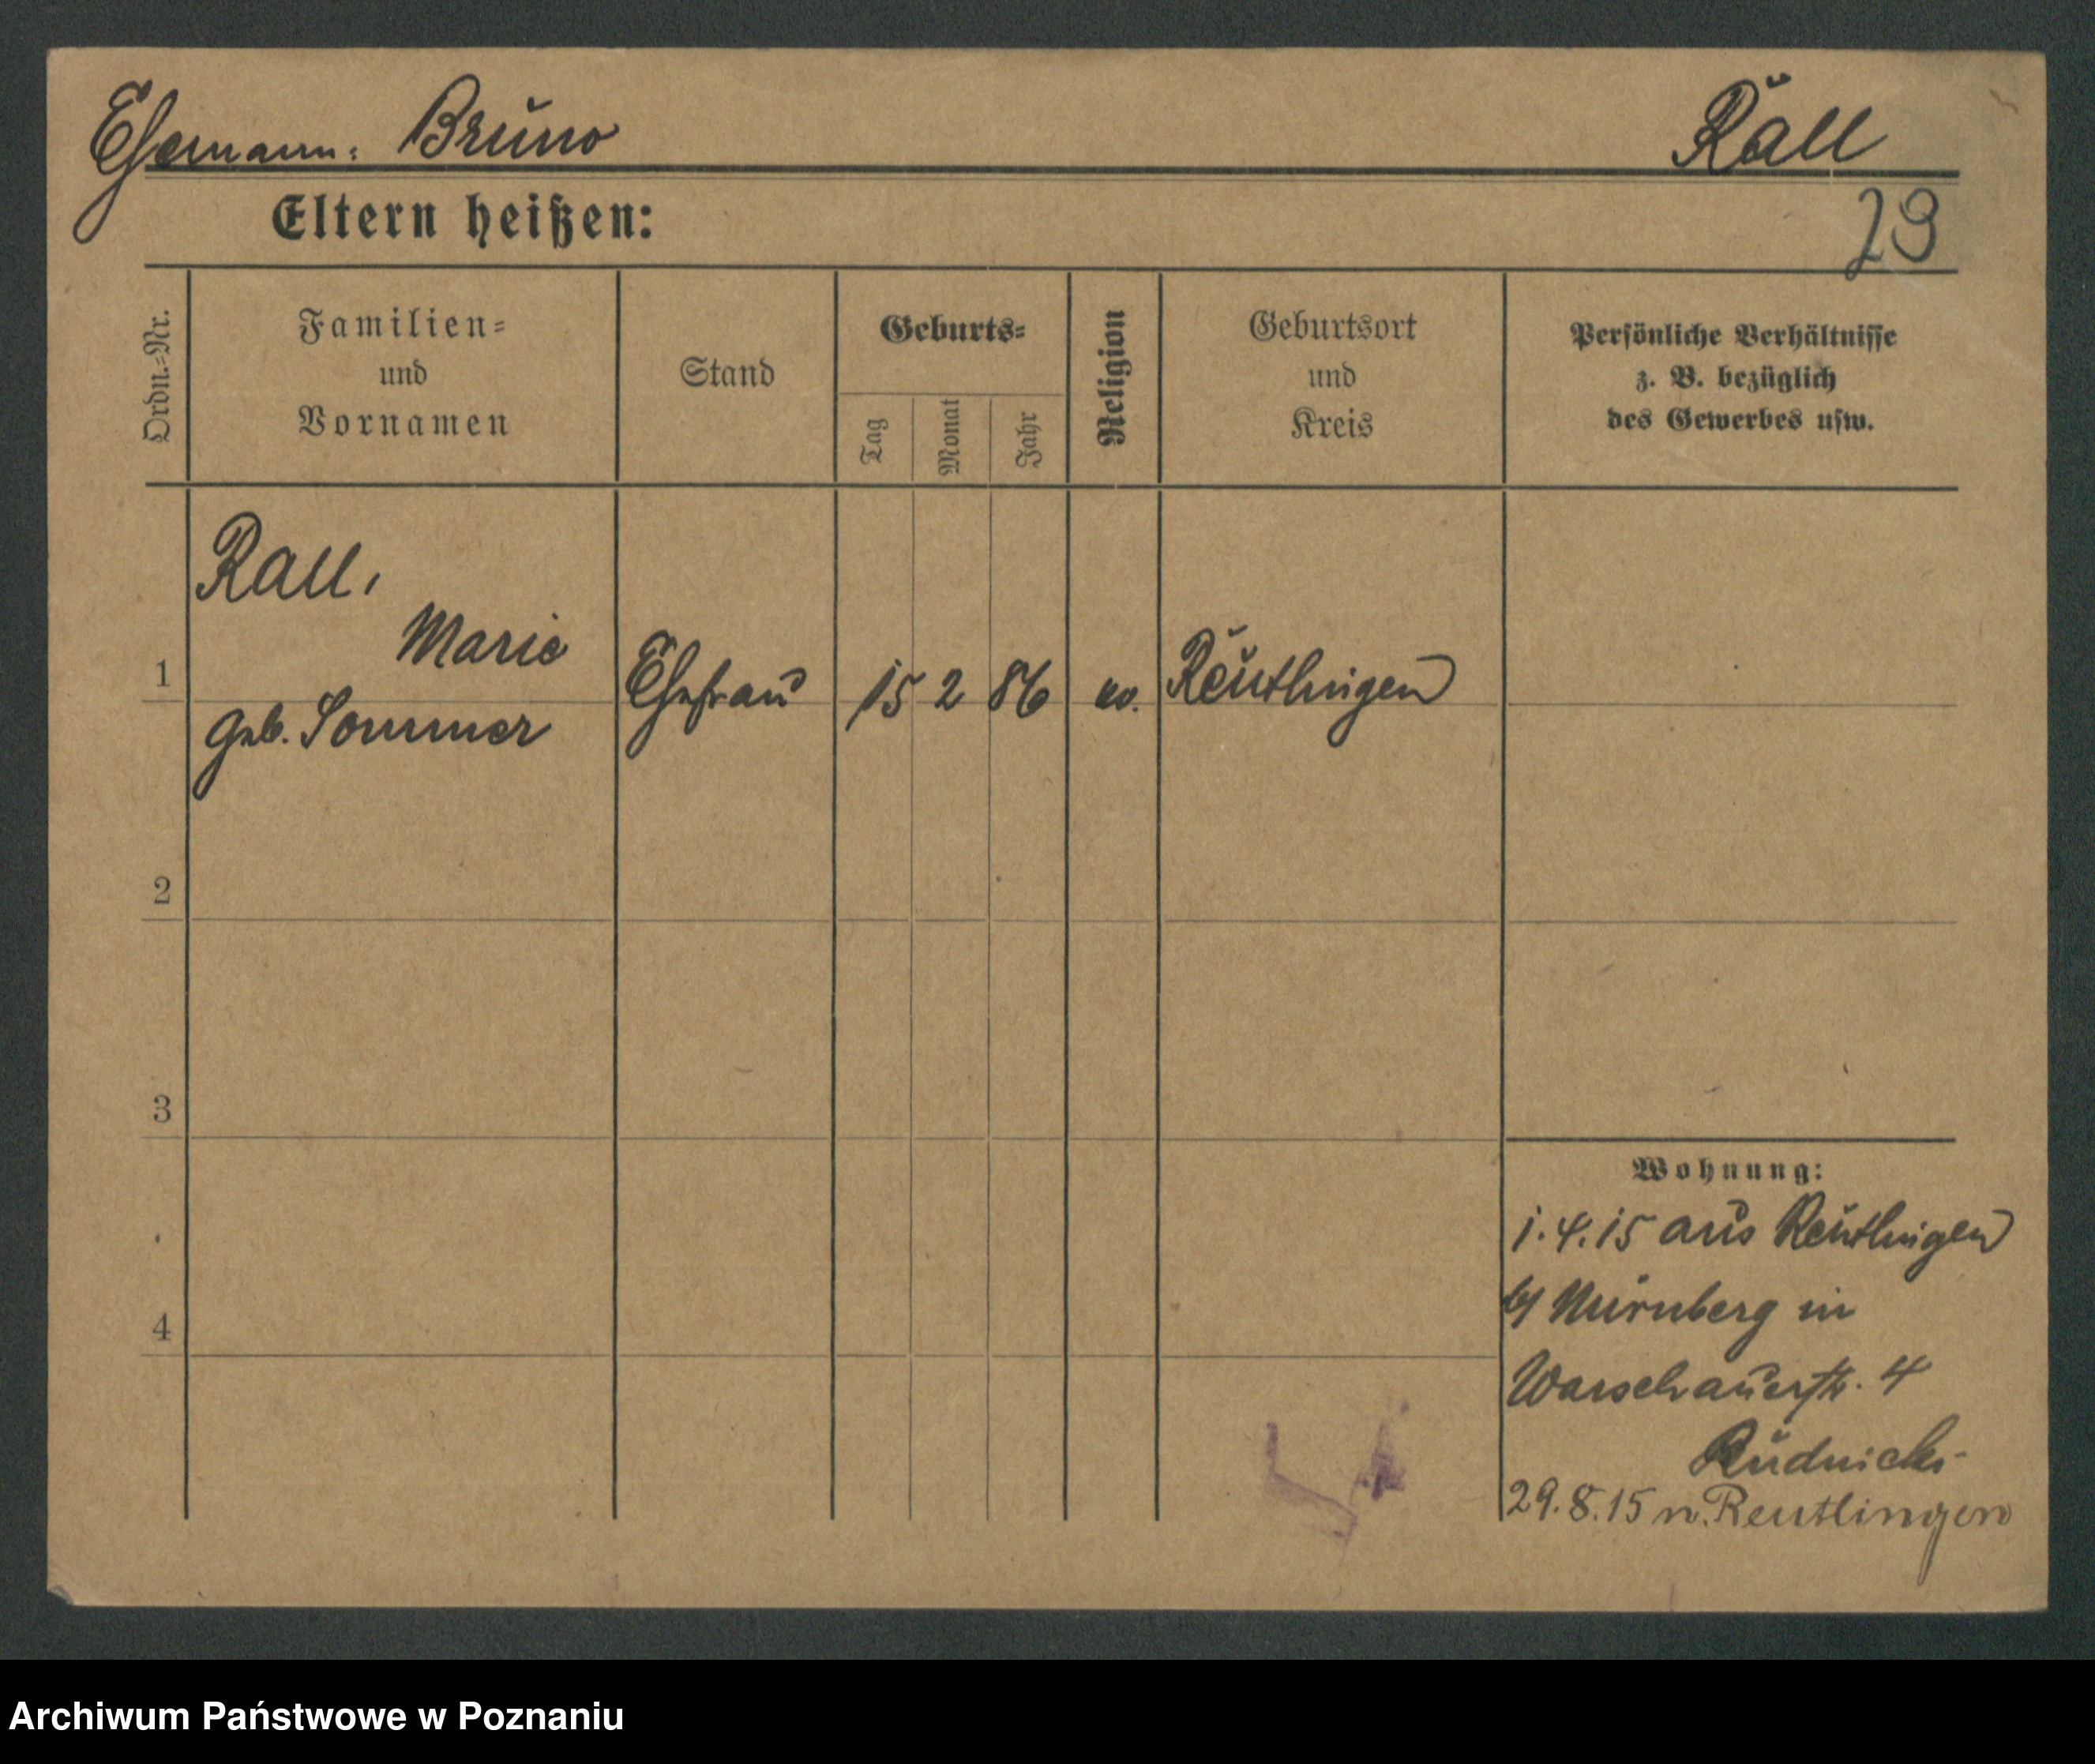 Ehemann: Bruno Rall
Eltern heißen:
29
Ordn.-Nr.
Familien-
und
Vornamen
Stand
Geburts-
Tag
Monat
Jahr
Religion
Geburtsort
und
Kreis
Persönliche Verhältnisse
z. B. bezüglich
des Gewerbes usw.
Rall,
Marie
1
geb. Sommer
Ehefrau 15 2 86 ev. Reutlingen
2
3
4
Wohnung:
1.4.15 aus Reutlingen
Nürnberg in
Warschauerstr. 4
Rudnicki
29.8.15 n. Reutlingen
Archiwum Państwowe w Poznaniu